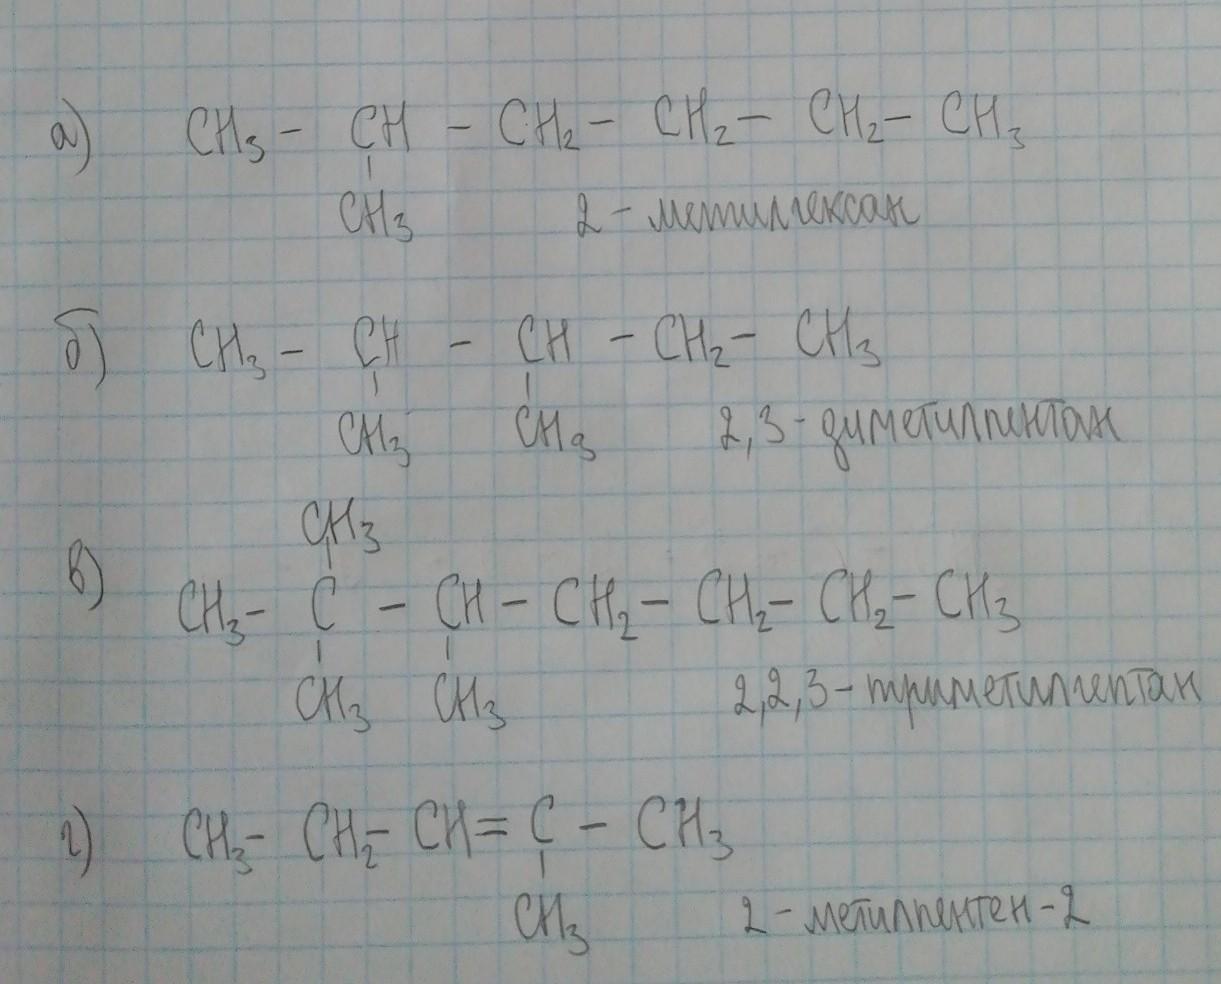 а) CH₃ - CH - CH₂ - CH₂ - CH₂ - CH₃
CH₃ 2 - метилгексан
б) CH₃ - CH - CH - CH₂ - CH₃
CH₃ CH₃ 2,3 - диметилпентан
CH₃
в) CH₃ - C - CH - CH₂ - CH₂ - CH₂ - CH₃
CH₃ CH₃ 2,2,3 - триметилгептан
г) CH₃ - CH₂ - CH = C - CH₃
CH₃ 2 - метилпентен - 2